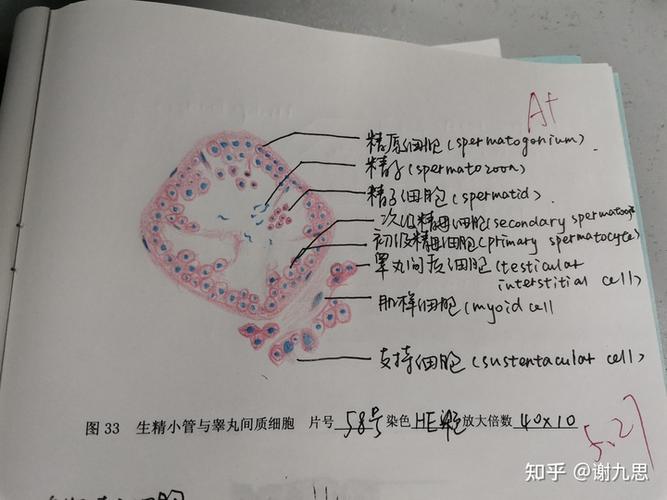 A+
精原细胞(spermatogonium).
精子(spermatozoon)
精子细胞(spermatid).
次级精母细胞(secondary
初级精母细胞(primary spermatocyte)
睾丸间质细胞(testicular
interstitial cell)
肌样细胞(myoid cell
支持细胞(sustentacular cell)
图 33 生精小管与睾丸间质细胞 片号 58号 染色 HE 放大倍数 40×10
5.27
知乎 @谢九思